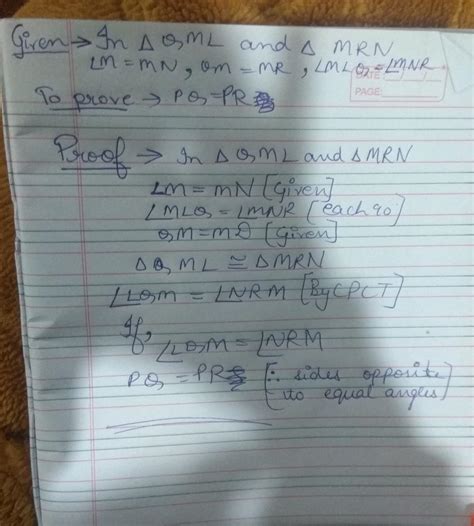 Given → In Δ QML and Δ MRN
LM = MN, QM = MR, ∠MLQ = ∠MNR
DATE
PAGE:
To prove → PQ = PR
Proof → In Δ QML and Δ MRN
LM = MN [Given]
∠MLQ = ∠MNR [each 90]
QM = MR [Given]
Δ QML ≅ Δ MRN
∠LQM = ∠NRM [By CPCT]
If,
∠LQM = ∠NRM
PQ = PR [∴ sides opposite
to equal angles]